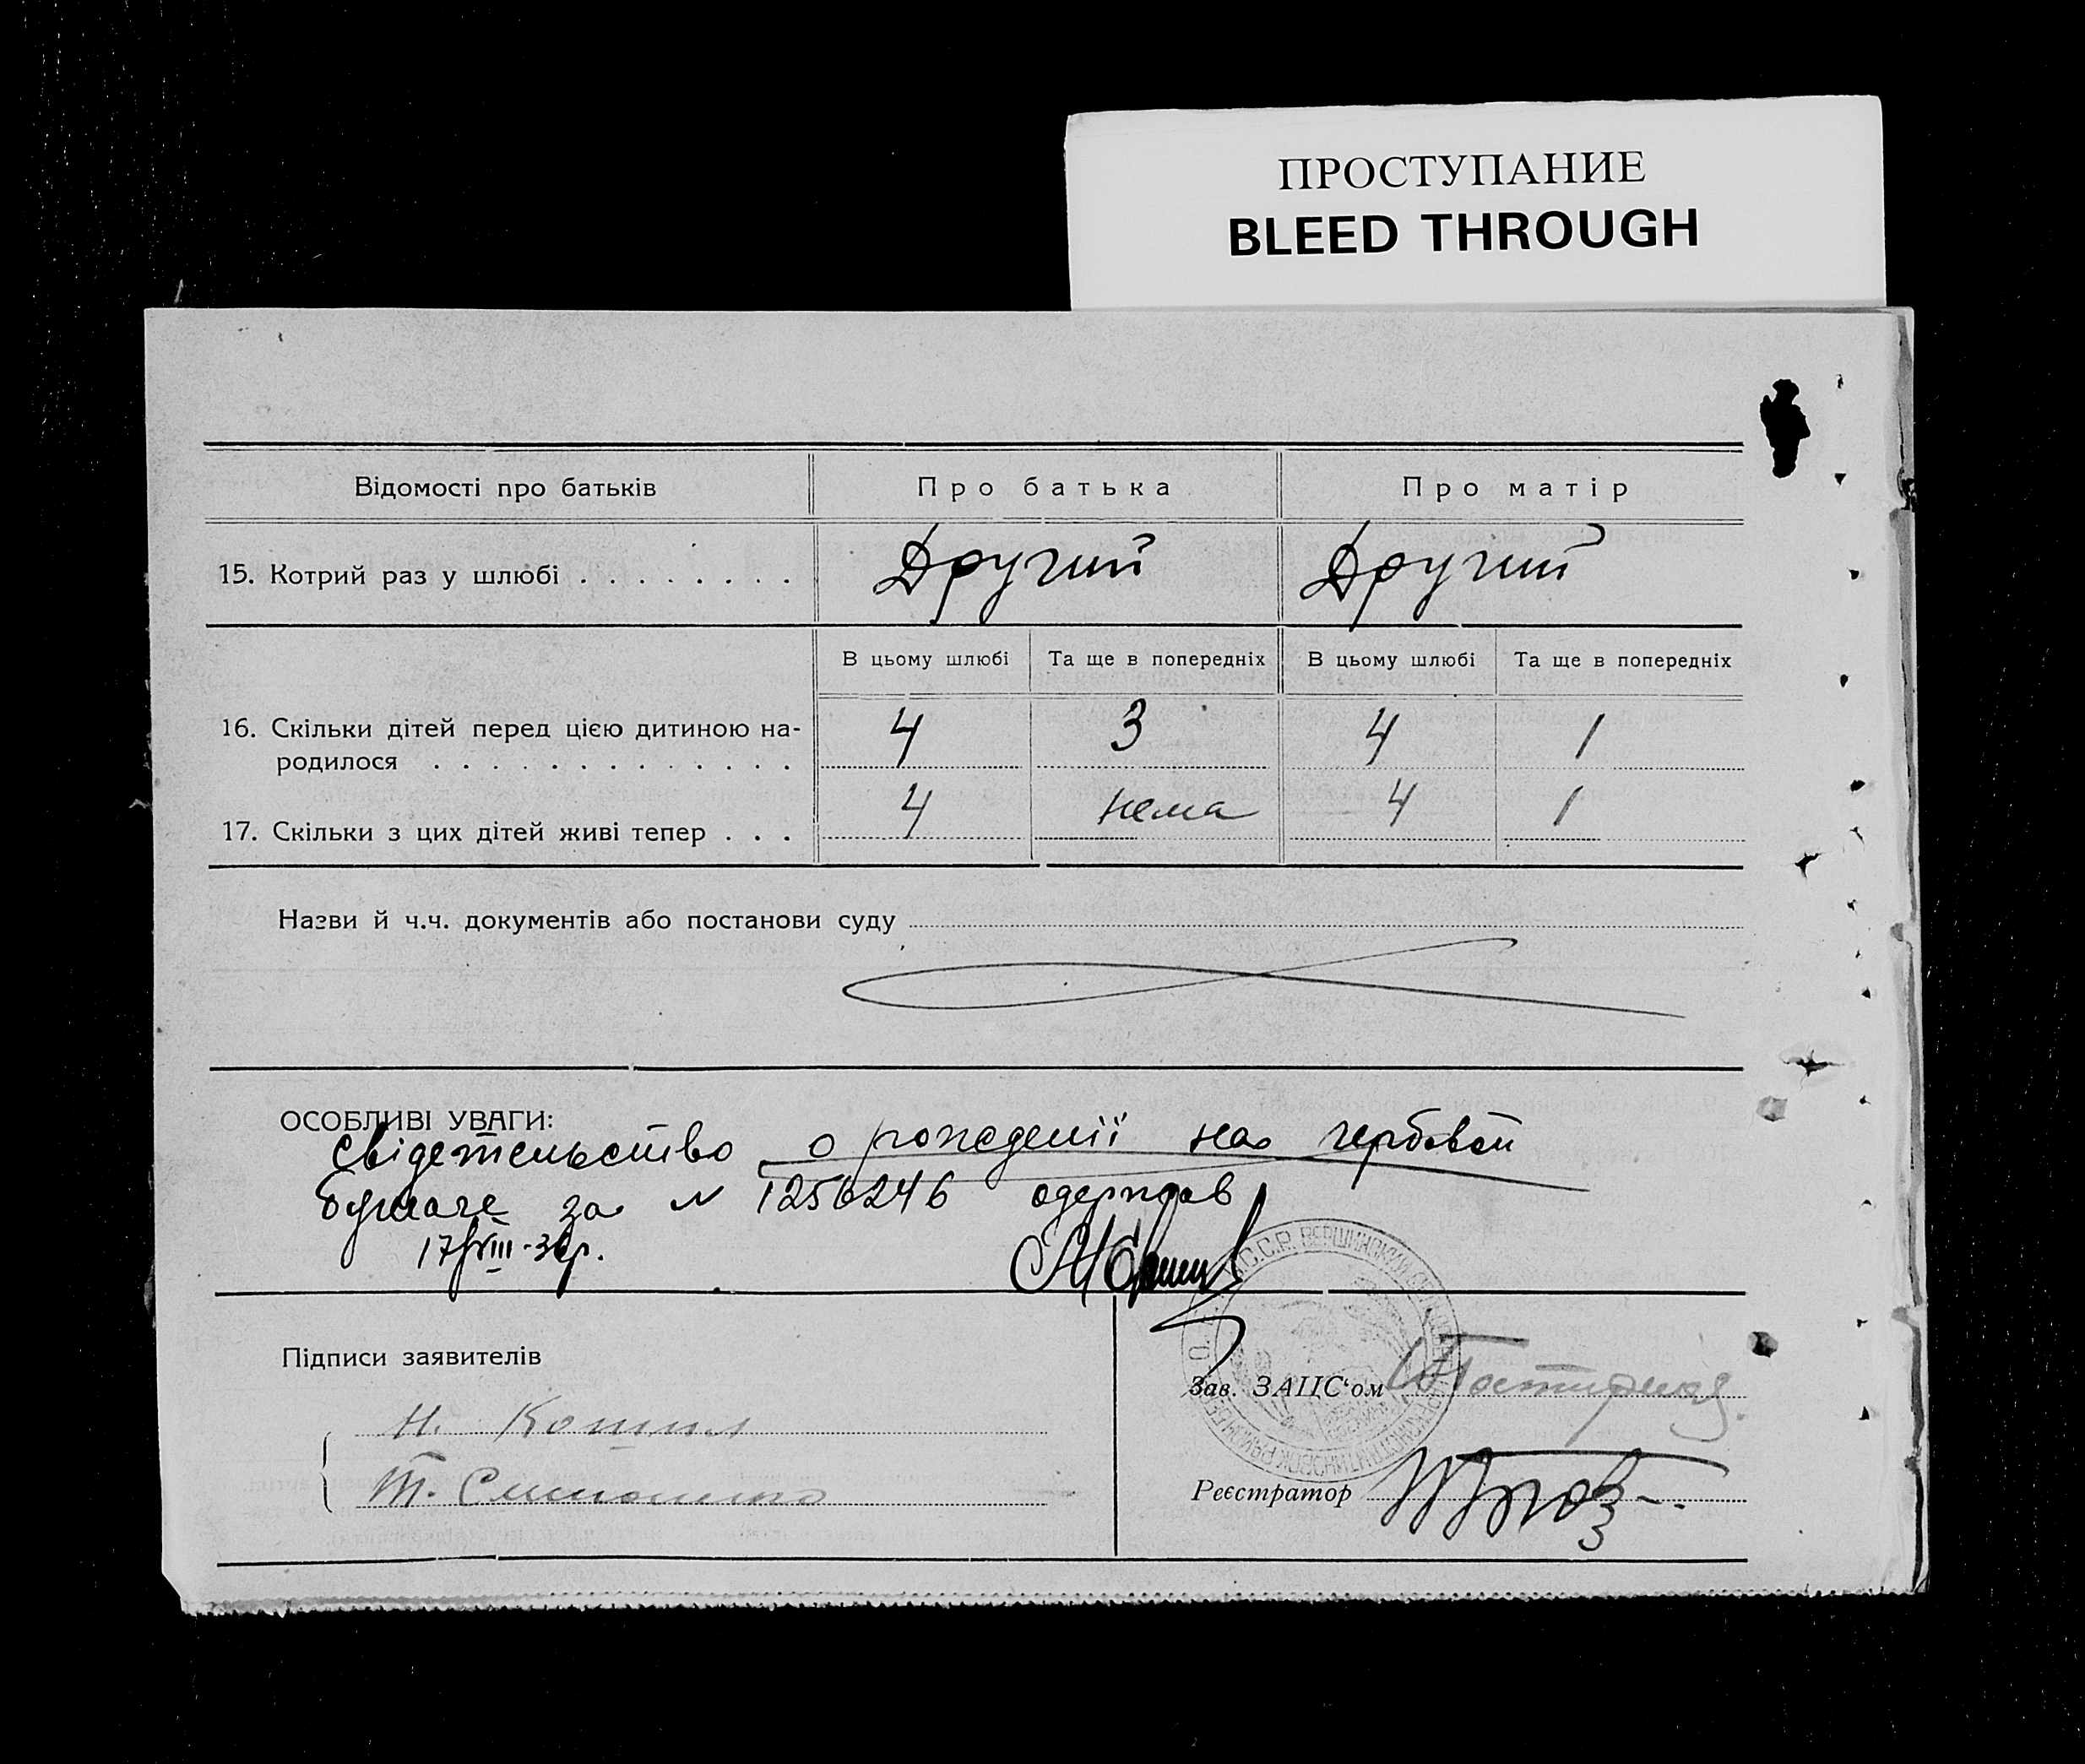 ПРОСТУПАНИЕ
BLEED THROUGH
Відомості про батьків Про батька Про матір
15. Котрий раз у шлюбі . . . . . . . . Другий Другий
В цьому шлюбі Та ще в попередніх В цьому шлюбі Та ще в попередніх
16. Скільки дітей перед цією дитиною на-
родилося . . . . . . . . . . . . . 4 3 4 1
17. Скільки з цих дітей живі тепер . . . 4 нема 4 1
Назви й ч.ч. документів або постанови суду
ОСОБЛИВІ УВАГИ:
Свідетельство о рожденії на гербовой
бумаге за N 1256246 одержав
17/VIII-36р.
Підписи заявителів
Зав. ЗАЦС‘ом
Н.
Реєстратор
Т.